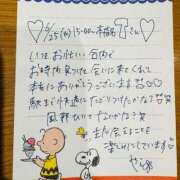 6/25(水)15:00〜 本指名 Tさん
いつもお忙しい合間で
お時間見つけて会いに来てくれて
本当にありがとうございます
駅まで快適にたどりつけたかな?
風邪ひいてないかな?
また会えることを
楽しみにしています